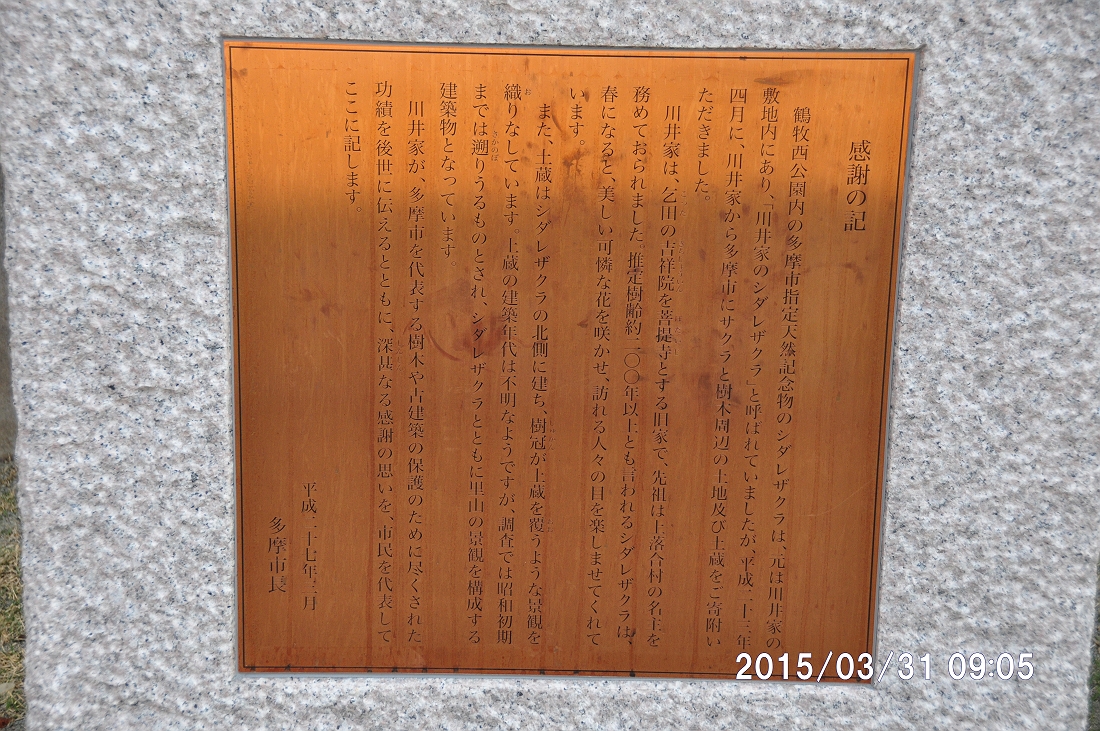 感謝の記
鶴牧西公園内の多摩市指定天然記念物のシダレザクラは、元は川井家の
敷地内にあり、「川井家のシダレザクラ」と呼ばれていましたが、平成二十三年
四月に、川井家から多摩市にサクラと樹木周辺の土地及び土蔵をご寄附い
ただきました。
川井家は、乞田の吉祥院を菩提寺とする旧家で、先祖は上落合村の名主を
務めておられました。推定樹齢約二〇〇年以上とも言われるシダレザクラは、
春になると、美しい可憐な花を咲かせ、訪れる人々の目を楽しませてくれて
います。
また、土蔵はシダレザクラの北側に建ち、樹冠が土蔵を覆うような景観を
織りなしています。土蔵の建築年代は不明なようですが、調査では昭和初期
までは遡りうるものとされ、シダレザクラとともに里山の景観を構成する
建築物となっています。
川井家が、多摩市を代表する樹木や古建築の保護のために尽くされた
功績を後世に伝えるとともに、深甚なる感謝の思いを、市民を代表して
ここに記します。
平成二十七年三月
多摩市長
2015/03/31 09:05